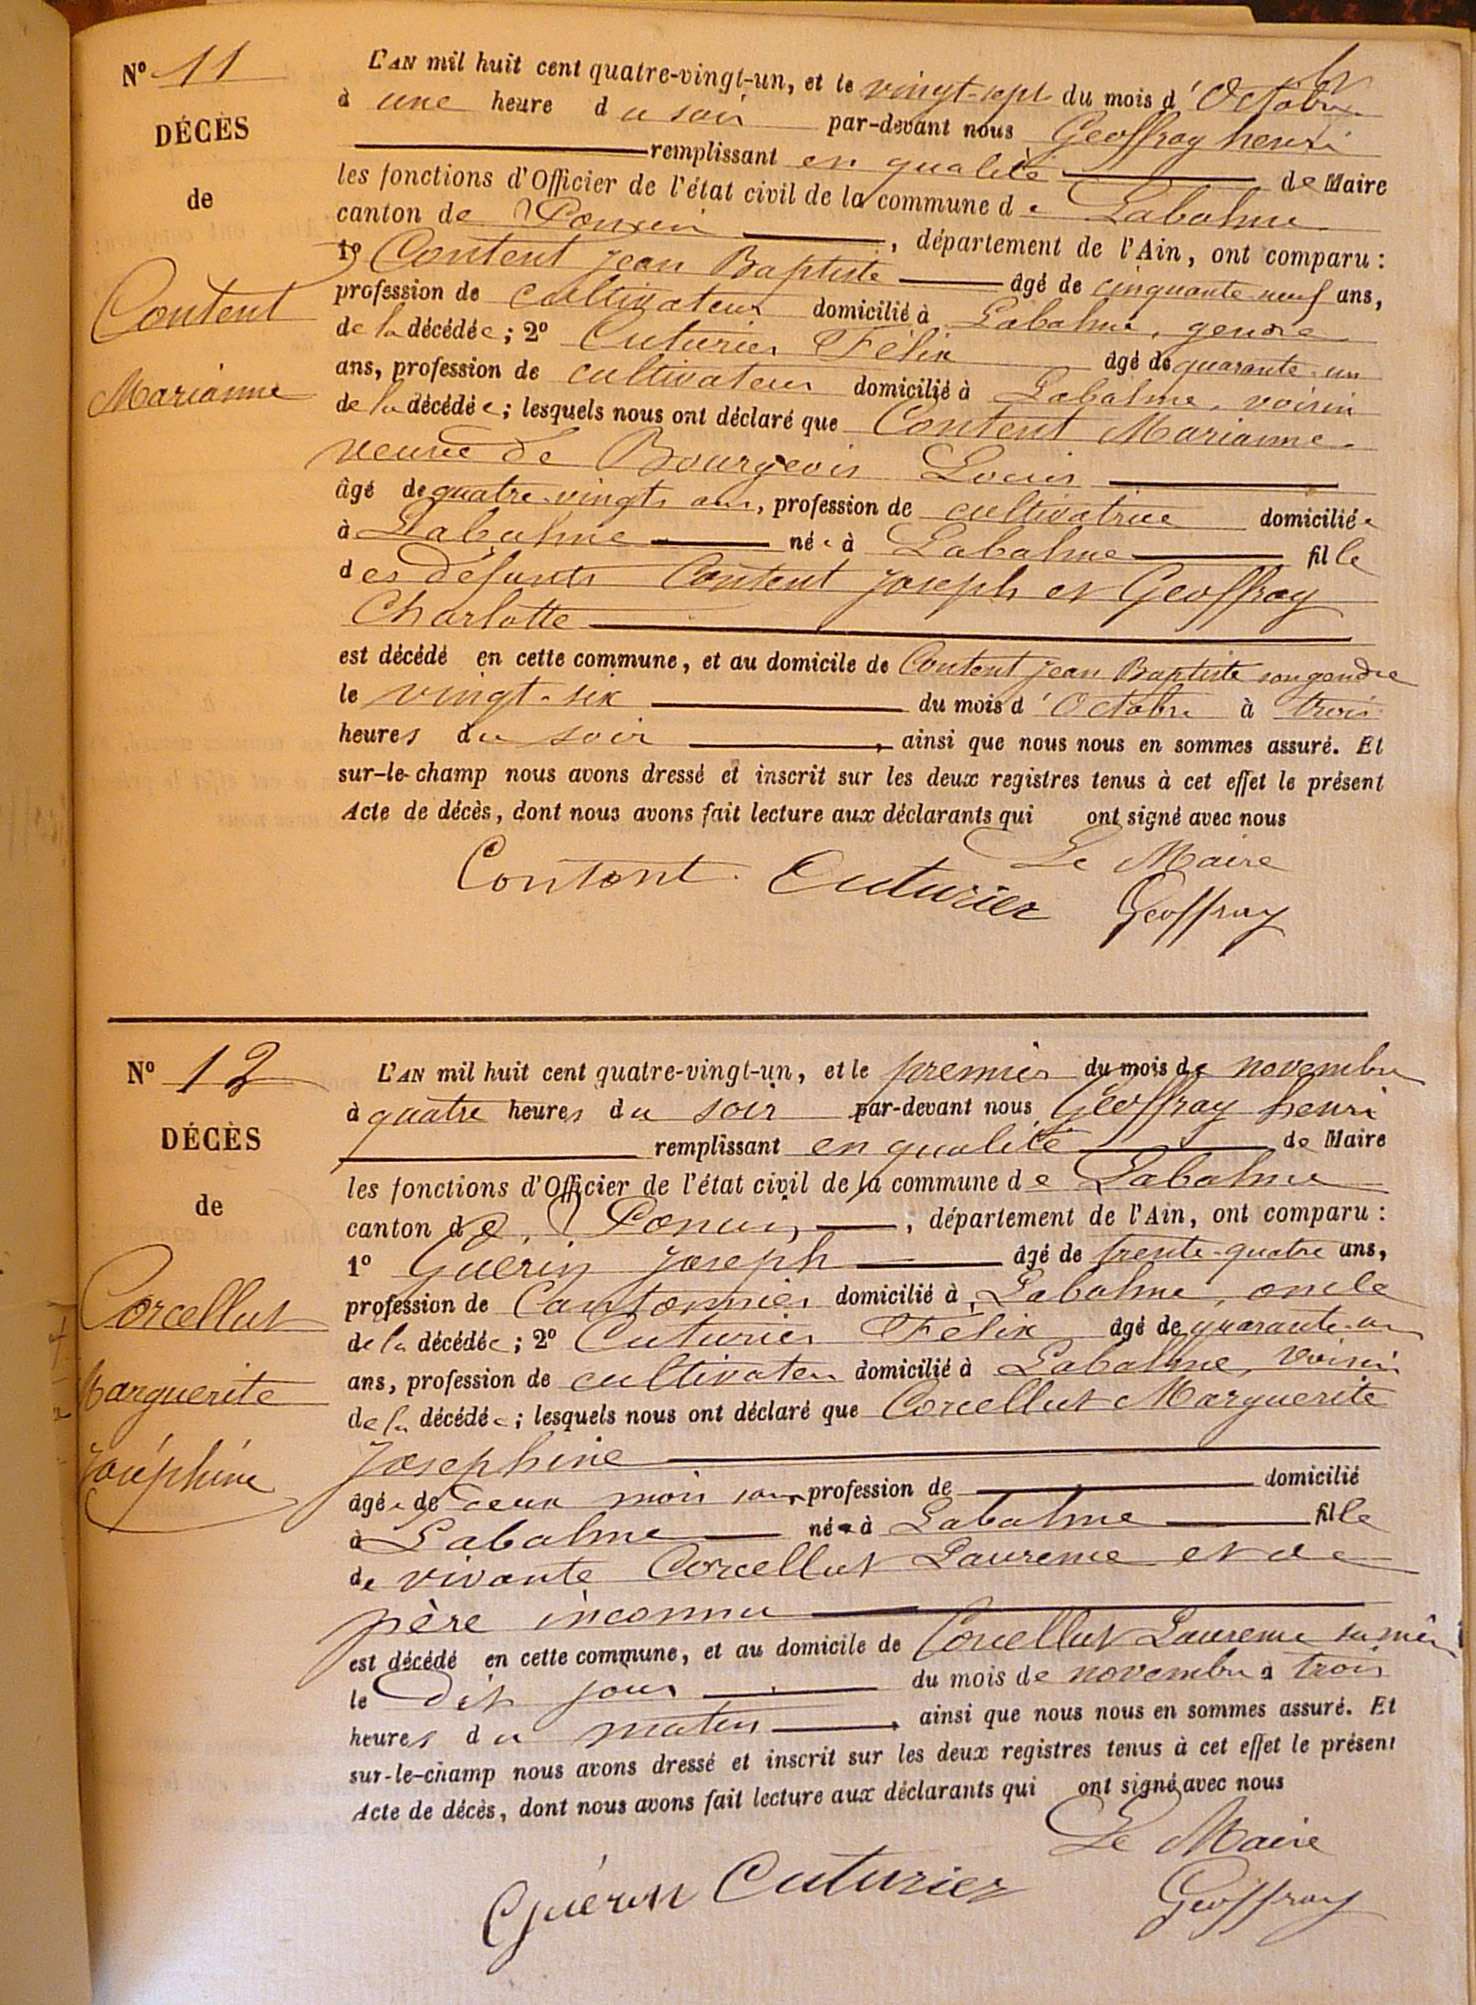 N° 11
DÉCÈS
de
Content
Marianne
L'AN mil huit cent quatre-vingt-un, et le vingt-sept du mois d'Octobre
à une heure du soir par-devant nous Geoffray henri
remplissant en qualité de Maire
les fonctions d'Officier de l'état civil de la commune de Labalme
canton de Poncin, département de l'Ain, ont comparu :
1° Content Jean Baptiste âgé de cinquante neuf ans,
profession de cultivateur domicilié à Labalme, gendre
de la décédée ; 2° Cuturier Félix âgé de quarante-un
ans, profession de cultivateur domicilié à Labalme, voisin
de la décédée ; lesquels nous ont déclaré que Content Marianne
veuve de Bourgeois Louis
âgé de quatre-vingts ans, profession de cultivatrice domiciliée
à Labalme née à Labalme fille
des défunts Content Joseph et Geoffray
Charlotte
est décédé en cette commune, et au domicile de Content Jean Baptiste son gendre
le vingt-six du mois d'Octobre à trois
heures du soir, ainsi que nous nous en sommes assuré. Et
sur-le-champ nous avons dressé et inscrit sur les deux registres tenus à cet effet le présent
Acte de décès, dont nous avons fait lecture aux déclarants qui ont signé avec nous
Le Maire
Contant Cuturier Geoffray
N° 12
DÉCÈS
de
Corcellut
Marguerite
Joséphine
L'AN mil huit cent quatre-vingt-un, et le premier du mois de novembre
à quatre heures du soir par-devant nous Geoffray henri
remplissant en qualité de Maire
les fonctions d'Officier de l'état civil de la commune de Labalme
canton de Poncin, département de l'Ain, ont comparu :
1° Guérin Joseph âgé de trente-quatre ans,
profession de Cantonnier domicilié à Labalme, oncle
de la décédée ; 2° Cuturier Félix âgé de quarante-un
ans, profession de cultivateur domicilié à Labalme, voisin
de la décédée ; lesquels nous ont déclaré que Corcellut Marguerite
Josephine
âgée de deux mois sans profession de domicilié
à Labalme née à Labalme fille
de vivante Corcellut Laurence et de
père inconnu
est décédé en cette commune, et au domicile de Corcellut Laurence sa mère
le dit jour du mois de novembre à trois
heures du matin, ainsi que nous nous en sommes assuré. Et
sur-le-champ nous avons dressé et inscrit sur les deux registres tenus à cet effet le présent
Acte de décès, dont nous avons fait lecture aux déclarants qui ont signé avec nous
Le Maire
Guérin Cuturier Geoffray